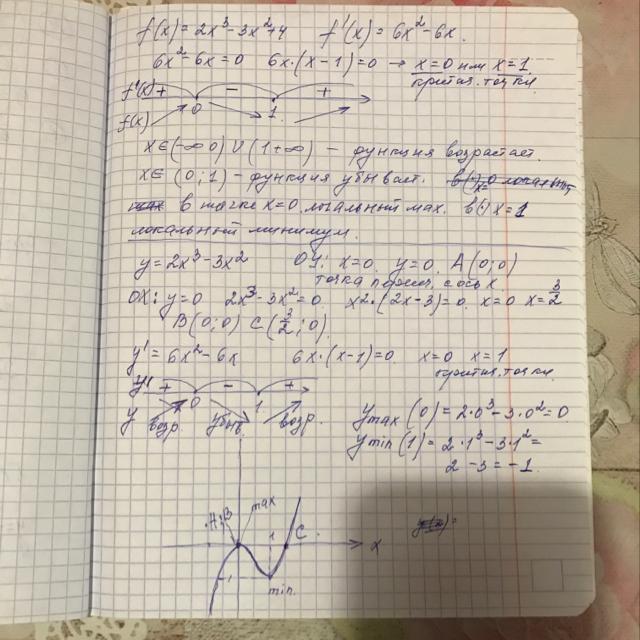 f(x) = 2x³-3x²+4 f'(x) = 6x²-6x.
6x²-6x=0 6x·(x-1)=0 → x=0 или x=1
критич. точки.
f'(x) + - +
0 1
f(x)
x∈(-∞ 0) U (1+∞) - функция возрастает.
x∈ (0;1) - функция убывает.
в точке x=0 локальный мах. в(·) x=1
локальный минимум.
y=2x³-3x² OY: x=0 y=0 A(0;0)
точка перес. с осью
OX: y=0 2x³-3x²=0 x²·(2x-3)=0. x=0 x=3/2
B(0;0) C(3/2;0)
y' = 6x²-6x 6x·(x-1)=0. x=0 x=1
критич. точки.
y' + - +
0 1
y возр. убыв. возр.
ymax (0) = 2·0³-3·0²=0.
ymin (1) = 2·1³-3·1²=
2-3=-1.
A;B max
1 C x
-1 min.